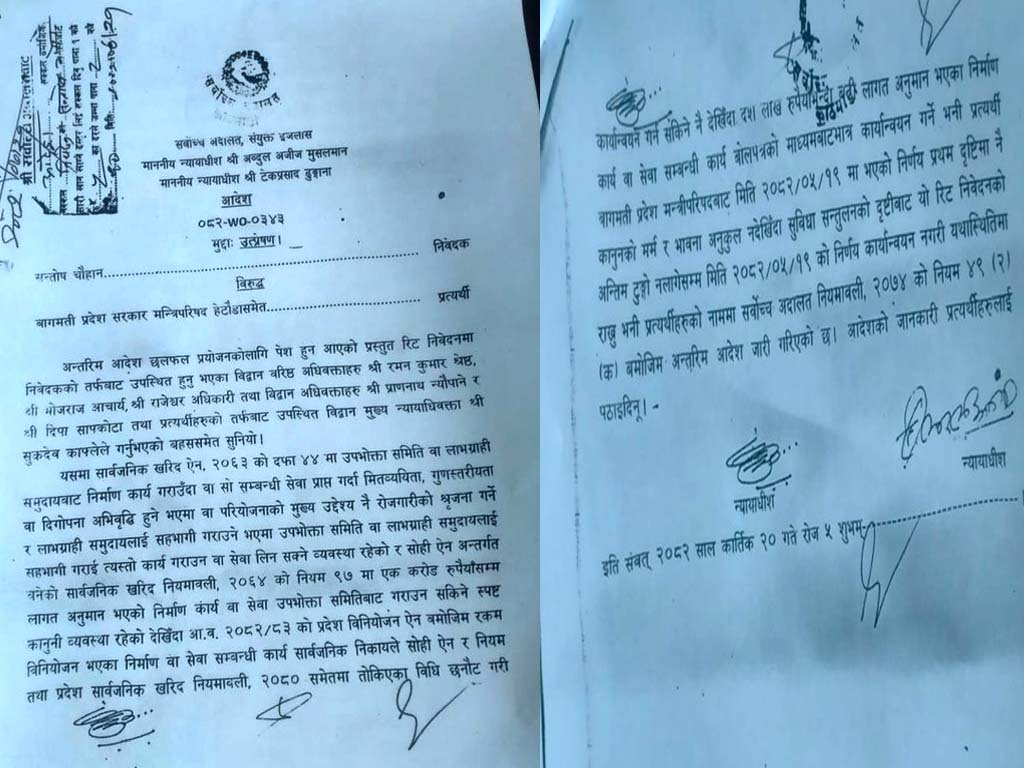 सर्वोच्च अदालत
सर्वोच्च अदालत, संयुक्त इजलास
माननीय न्यायाधीश श्री अब्दुल अजीज मुसलमान
माननीय न्यायाधीश श्री टेकप्रसाद ढुङ्गाना
आदेश
०८२-WO-०३४३
मुद्दाः उत्प्रेषण।
सन्तोष चौहान........................................ निवेदक
विरुद्ध
बागमती प्रदेश सरकार मन्त्रिपरिषद हेटौडासमेत........................ प्रत्यर्थी
अन्तरिम आदेश छलफल प्रयोजनकोलागि पेश हुन आएको प्रस्तुत रिट निवेदनमा
निवेदकको तर्फबाट उपस्थित हुनु भएका विद्वान वरिष्ठ अधिवक्ताहरु श्री रमन कुमार श्रेष्ठ,
श्री भोजराज आचार्य, श्री राजेश्वर अधिकारी तथा विद्वान अधिवक्ताहरु श्री प्राणनाथ न्यौपाने र
श्री दिपा सापकोटा तथा प्रत्यर्थीहरुको तर्फबाट उपस्थित विद्वान मुख्य न्यायाधिवक्ता श्री
सुकदेव काफ्लेले गर्नुभएको बहससमेत सुनियो।
यसमा सार्वजनिक खरिद ऐन, २०६३ को दफा ४४ मा उपभोक्ता समिति वा लाभग्राही
समुदायबाट निर्माण कार्य गराउँदा वा सो सम्बन्धी सेवा प्राप्त गर्दा मितव्ययिता, गुणस्तरीयता
वा दिगोपना अभिवृद्धि हुने भएमा वा परियोजनाको मुख्य उद्देश्य नै रोजगारीको श्रृजना गर्ने
र लाभग्राही समुदायलाई सहभागी गराउने भएमा उपभोक्ता समिति वा लाभग्राही समुदायलाई
सहभागी गराई त्यस्तो कार्य गराउन वा सेवा लिन सक्ने व्यवस्था रहेको र सोही ऐन अन्तर्गत
बनेको सार्वजनिक खरिद नियमावली, २०६४ को नियम ९७ मा एक करोड रुपैयाँसम्म
लागत अनुमान भएको निर्माण कार्य वा सेवा उपभोक्ता समितिबाट गराउन सकिने स्पष्ट
कानुनी व्यवस्था रहेको देखिँदा आ.व. २०८२/८३ को प्रदेश विनियोजन ऐन बमोजिम रकम
विनियोजन भएका निर्माण वा सेवा सम्बन्धी कार्य सार्वजनिक निकायले सोही ऐन र नियम
तथा प्रदेश सार्वजनिक खरिद नियमावली, २०८० समेतमा तोकिएका विधि छनौट गरी
कार्यान्वयन गर्न सकिने नै देखिँदा दश लाख रुपैयाँभन्दा बढी लागत अनुमान भएका निर्माण
कार्य वा सेवा सम्बन्धी कार्य बोलपत्रको माध्यमबाटमात्र कार्यान्वयन गर्ने भनी प्रत्यर्थी
बागमती प्रदेश मन्त्रीपरिषदबाट मिति २०८२/०५/१९ मा भएको निर्णय प्रथम दृष्टिमा नै
कानुनको मर्म र भावना अनुकुल नदेखिँदा सुविधा सन्तुलनको दृष्टीबाट यो रिट निवेदनको
अन्तिम टुङ्गो नलागेसम्म मिति २०८२/०५/१९ को निर्णय कार्यान्वयन नगरी यथास्थितिमा
राख्नु भनी प्रत्यर्थीहरुको नाममा सर्वोच्च अदालत नियमावली, २०७४ को नियम ४९ (२)
(क) बमोजिम अन्तरिम आदेश जारी गरिएको छ। आदेशको जानकारी प्रत्यर्थीहरुलाई
पठाइदिनू।-
न्यायाधीश
न्यायाधीश
इति संवत् २०८२ साल कार्तिक २० गते रोज ५ शुभम्........................